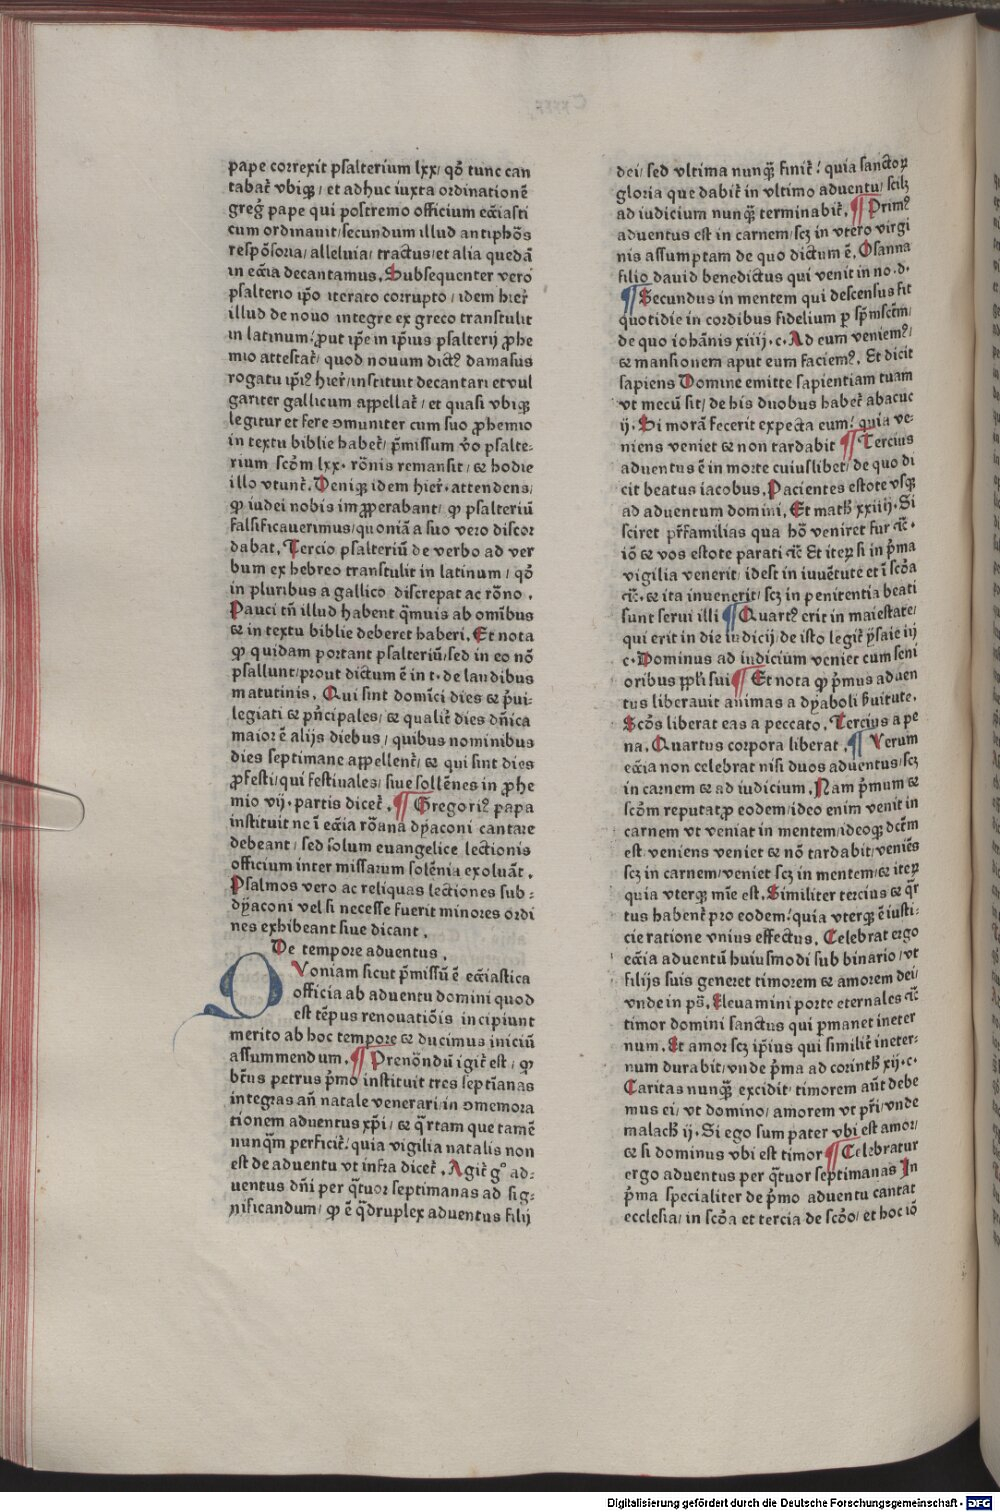 pape correxit psalterium lxx/ qđ tunc can
tabat᷑ vbiqꝫ/ et adhuc iuxta ordinationē
greg᷑ pape qui postremo officium ecc̄iasti
cum ordinauit/ secundum illud antiphōs
respōsoria/ alleluia/ tractus/ et alia quedā
in ecc̄ia decantamus. Subsequenter vero
psalterio ip̄o iterato corrupto/ idem hier᷑
illud de nouo integre ex greco transtulit
in latinum/ ꝓut ip̄e in ip̄ius psalterij ꝓhe
mio attestat᷑/ quod nouum dictꝰ damasus
rogatu ip̄iꝰ hier᷑/ instituit decantari et vul
gariter gallicum appellat᷑/ et quasi vbiqꝫ
legitur et fere ꝯmuniter cum suo ꝓhemio
in textu biblie habet᷑/ p̄missum v̄o psalte-
rium scđm lxx. rōnis remansit/ ⁊ hodie
illo vtunt᷑. Deniqꝫ idem hier᷑. attendens/
ꝙ iudei nobis imꝓperabant/ ꝙ psalteriū
falsificauerimus/ quoniā a suo vero discor
dabat. Tercio psalteriū de verbo ad ver
bum ex hebreo transtulit in latinum/ qđ
in pluribus a gallico discrepat ac rōno.
Pauci tn̄ illud habent q̄muis ab omībus
⁊ in textu biblie deberet haberi. Et nota
ꝙ quidam portant psalteriū/ sed in eo nō
psallunt/ prout dictum ē in t. de laudibus
matutinis. Qui sint domīci dies ⁊ p̄ui-
legiati ⁊ pn̄cipales/ ⁊ qualit᷑ dies dn̄ica
maior ē alijs diebus/ quibus nominibus
dies septimane appellent᷑/ ⁊ qui sint dies
ꝓfesti/ qui festiuales/ siue sollēnes in ꝓhe
mio vij. partis dicet᷑. ¶ Gregoriꝰ papa
instituit ne ī ecc̄ia rōana dyaconi cantare
debeant/ sed solum euangelice lectionis
officium inter missarum solēnia exoluāt.
Psalmos vero ac reliquas lectiones sub-
dyaconi vel si necesse fuerit minores ordi
nes exhibeant siue dicant.
De tempore aduentus.
QVoniam sicut p̄missū ē ecc̄iastica
officia ab aduentu domini quod
est tēpus renouatiōis incipiunt
merito ab hoc tempore ⁊ ducimus iniciū
assummendum. ¶ Prenōndū igit᷑ est/ ꝙ
bt̄us petrus p̄mo instituit tres septīanas
integras añ natale venerari/ in ꝯmemora
tionem aduentus xp̄i/ ⁊ q̄rtam que tamē
nunq̄m perficit᷑/ quia vigilia natalis non
est de aduentu vt infra dicet᷑. Agit᷑ g° ad-
uentus dn̄i per q̄tuor septimanas ad sig-
nificandum/ ꝙ ē q̄druplex aduentus filij
dei/ sed vltima nunq̄ꝫ finit᷑/ quia sanctoꝝ
gloria que dabit᷑ in vltimo aduentu/ scilꝫ
ad iudicium nunq̄ꝫ terminabit᷑. ¶ Primꝰ
aduentus est in carnem/ scꝫ in vtero virgi
nis assumptam de quo dictum ē. Osanna
filio dauid benedictus qui venit in no. d.
¶ Secundus in mentem qui descensus fit
quotidie in cordibus fidelium ꝑ sp̄msct̄m/
de quo iohānis xiiij. c. Ad eum veniemꝰ/
⁊ mansionem aput eum faciemꝰ. Et dicit
sapiens Domine emitte sapientiam tuam
vt mecū sit/ de his duobus habet᷑ abacuc
ij. Si morā fecerit expecta eum/ quia ve-
niens veniet ⁊ non tardabit ¶ Tercius
aduentus ē in morte cuiuslibet/ de quo di
cit beatus iacobus. Pacientes estote vsqꝫ
ad aduentum domini. Et math̄ xxiiij. Si
sciret pr̄familias qua hō veniret fur ⁊c̄.
iō ⁊ vos estote parati ⁊c̄ Et iteꝝ si in p̄ma
vigilia venerit/ id est in iuuētute et ī scđa
⁊c̄. ⁊ ita inuenerit/ scꝫ in penitentia beati
sunt serui illi ¶ Quartꝰ erit in maiestate/
qui erit in die iudicij/ de isto legit᷑ ysaie iij
c. Dominus ad iudicium veniet cum seni
oribus ppl̄i sui ¶ Et nota ꝙ p̄mus aduen
tus liberauit animas a dyaboli ẜuitute.
Scđs liberat eas a peccato. Tercius a pe
na. Quartus corpora liberat. ¶ Verum
ecc̄ia non celebrat nisi duos aduentus/ scꝫ
in carnem ⁊ ad iudicium. Nam p̄mum ⁊
scđm reputat ꝓ eodem/ ideo enim venit in
carnem vt veniat in mentem/ ideoqꝫ dc̄m
est. veniens veniet ⁊ nō tardabit/ veniēs
scꝫ in carnem/ veniet scꝫ in mentem/ ⁊ iteꝝ
quia vterqꝫ mīe est. Similiter tercius ⁊ q̄r
tus habent᷑ pro eodem/ quia vterqꝫ ē iusti-
cie ratione vnius effectus. Celebrat ergo
ecc̄ia aduentū huiusmodi sub binario/ vt
filijs suis generet timorem ⁊ amorem dei/
vnde in ps̄. Eleuamini porte eternales ⁊c̄
timor domini sanctus qui ꝑmanet in eter
num. Et amor scꝫ ip̄ius qui similit᷑ in eter-
num durabit/ vnde p̄ma ad corinth̄ xij. c.
Caritas nunq̄ꝫ excidit/ timorem aūt debe
mus ei/ vt domino/ amorem vt pr̄i/ vnde
malach̄ ij. Si ego sum pater vbi est amor/
⁊ si dominus vbi est timor ¶ Celebratur
ergo aduentus per q̄tuor septimanas In
p̄ma specialiter de p̄mo aduentu cantat
ecclesia/ in scđa et tercia de scđo/ et hoc iō
Digitalisierung gefördert durch die Deutsche Forschungsgemeinschaft - DFG